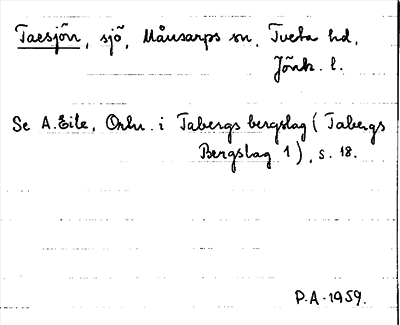 Taesjön, sjö, Månsarps sn. Tveta hd,
Jönk. l.
Se A. Eile, Ortn. i Tabergs bergslag (Tabergs
Bergslag 1), s. 18.
P.A. 1959.